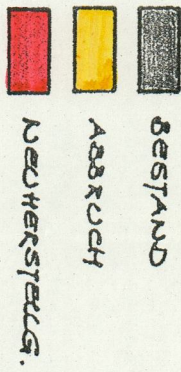 BESTAND
ABBRUCH
NEUHERSTELLG.